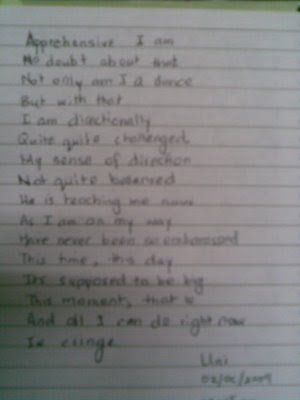 Apprehensive I am
No doubt about that
Not only am I a dunce
But with that
I am directionally
Quite quite challenged
My sense of direction
Not quite
He is teaching me now
As I am on my way
Have never been so embarassed
This time, this day
Its supposed to be big
This moment, that is
And all I can do right now
Is cringe
Uni